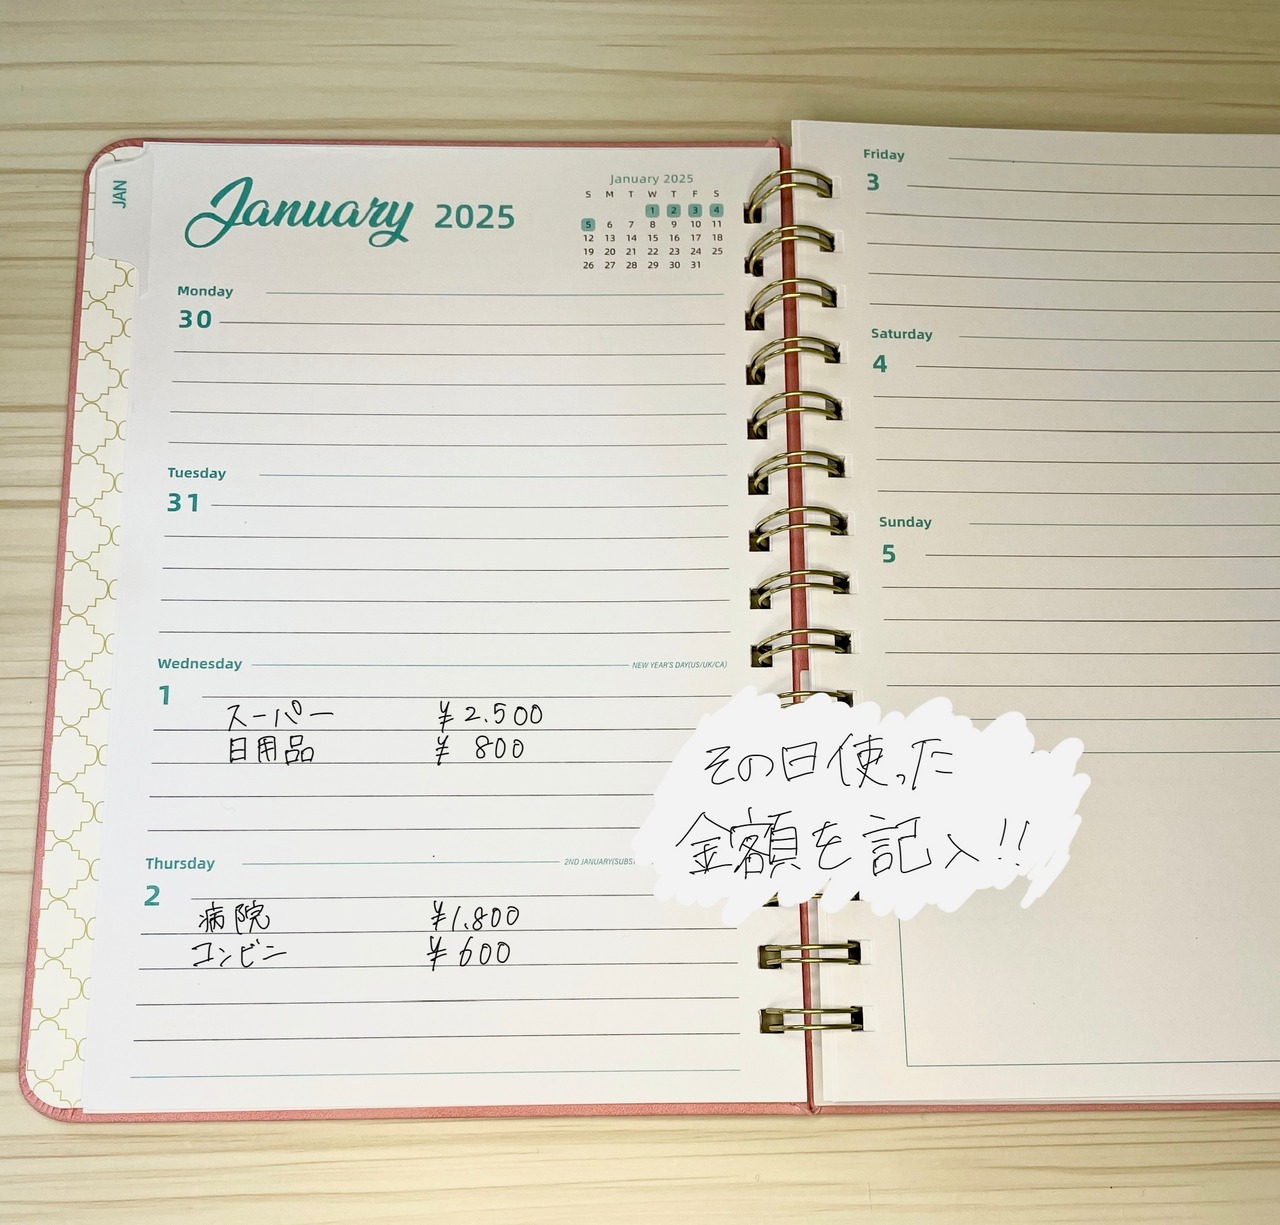 JAN
January 2025
January 2025
S M T W T F S
1 2 3 4
5 6 7 8 9 10 11
12 13 14 15 16 17 18
19 20 21 22 23 24 25
26 27 28 29 30 31
Monday
30
Tuesday
31
Wednesday
NEW YEAR'S DAY(US/UK/CA)
1
スーパー ¥2.500
日用品 ¥ 800
Thursday
2ND JANUARY(SUBST
2
病院 ¥1.800
コンビニ ¥600
Friday
3
Saturday
4
Sunday
5
その日使った
金額を記入!!